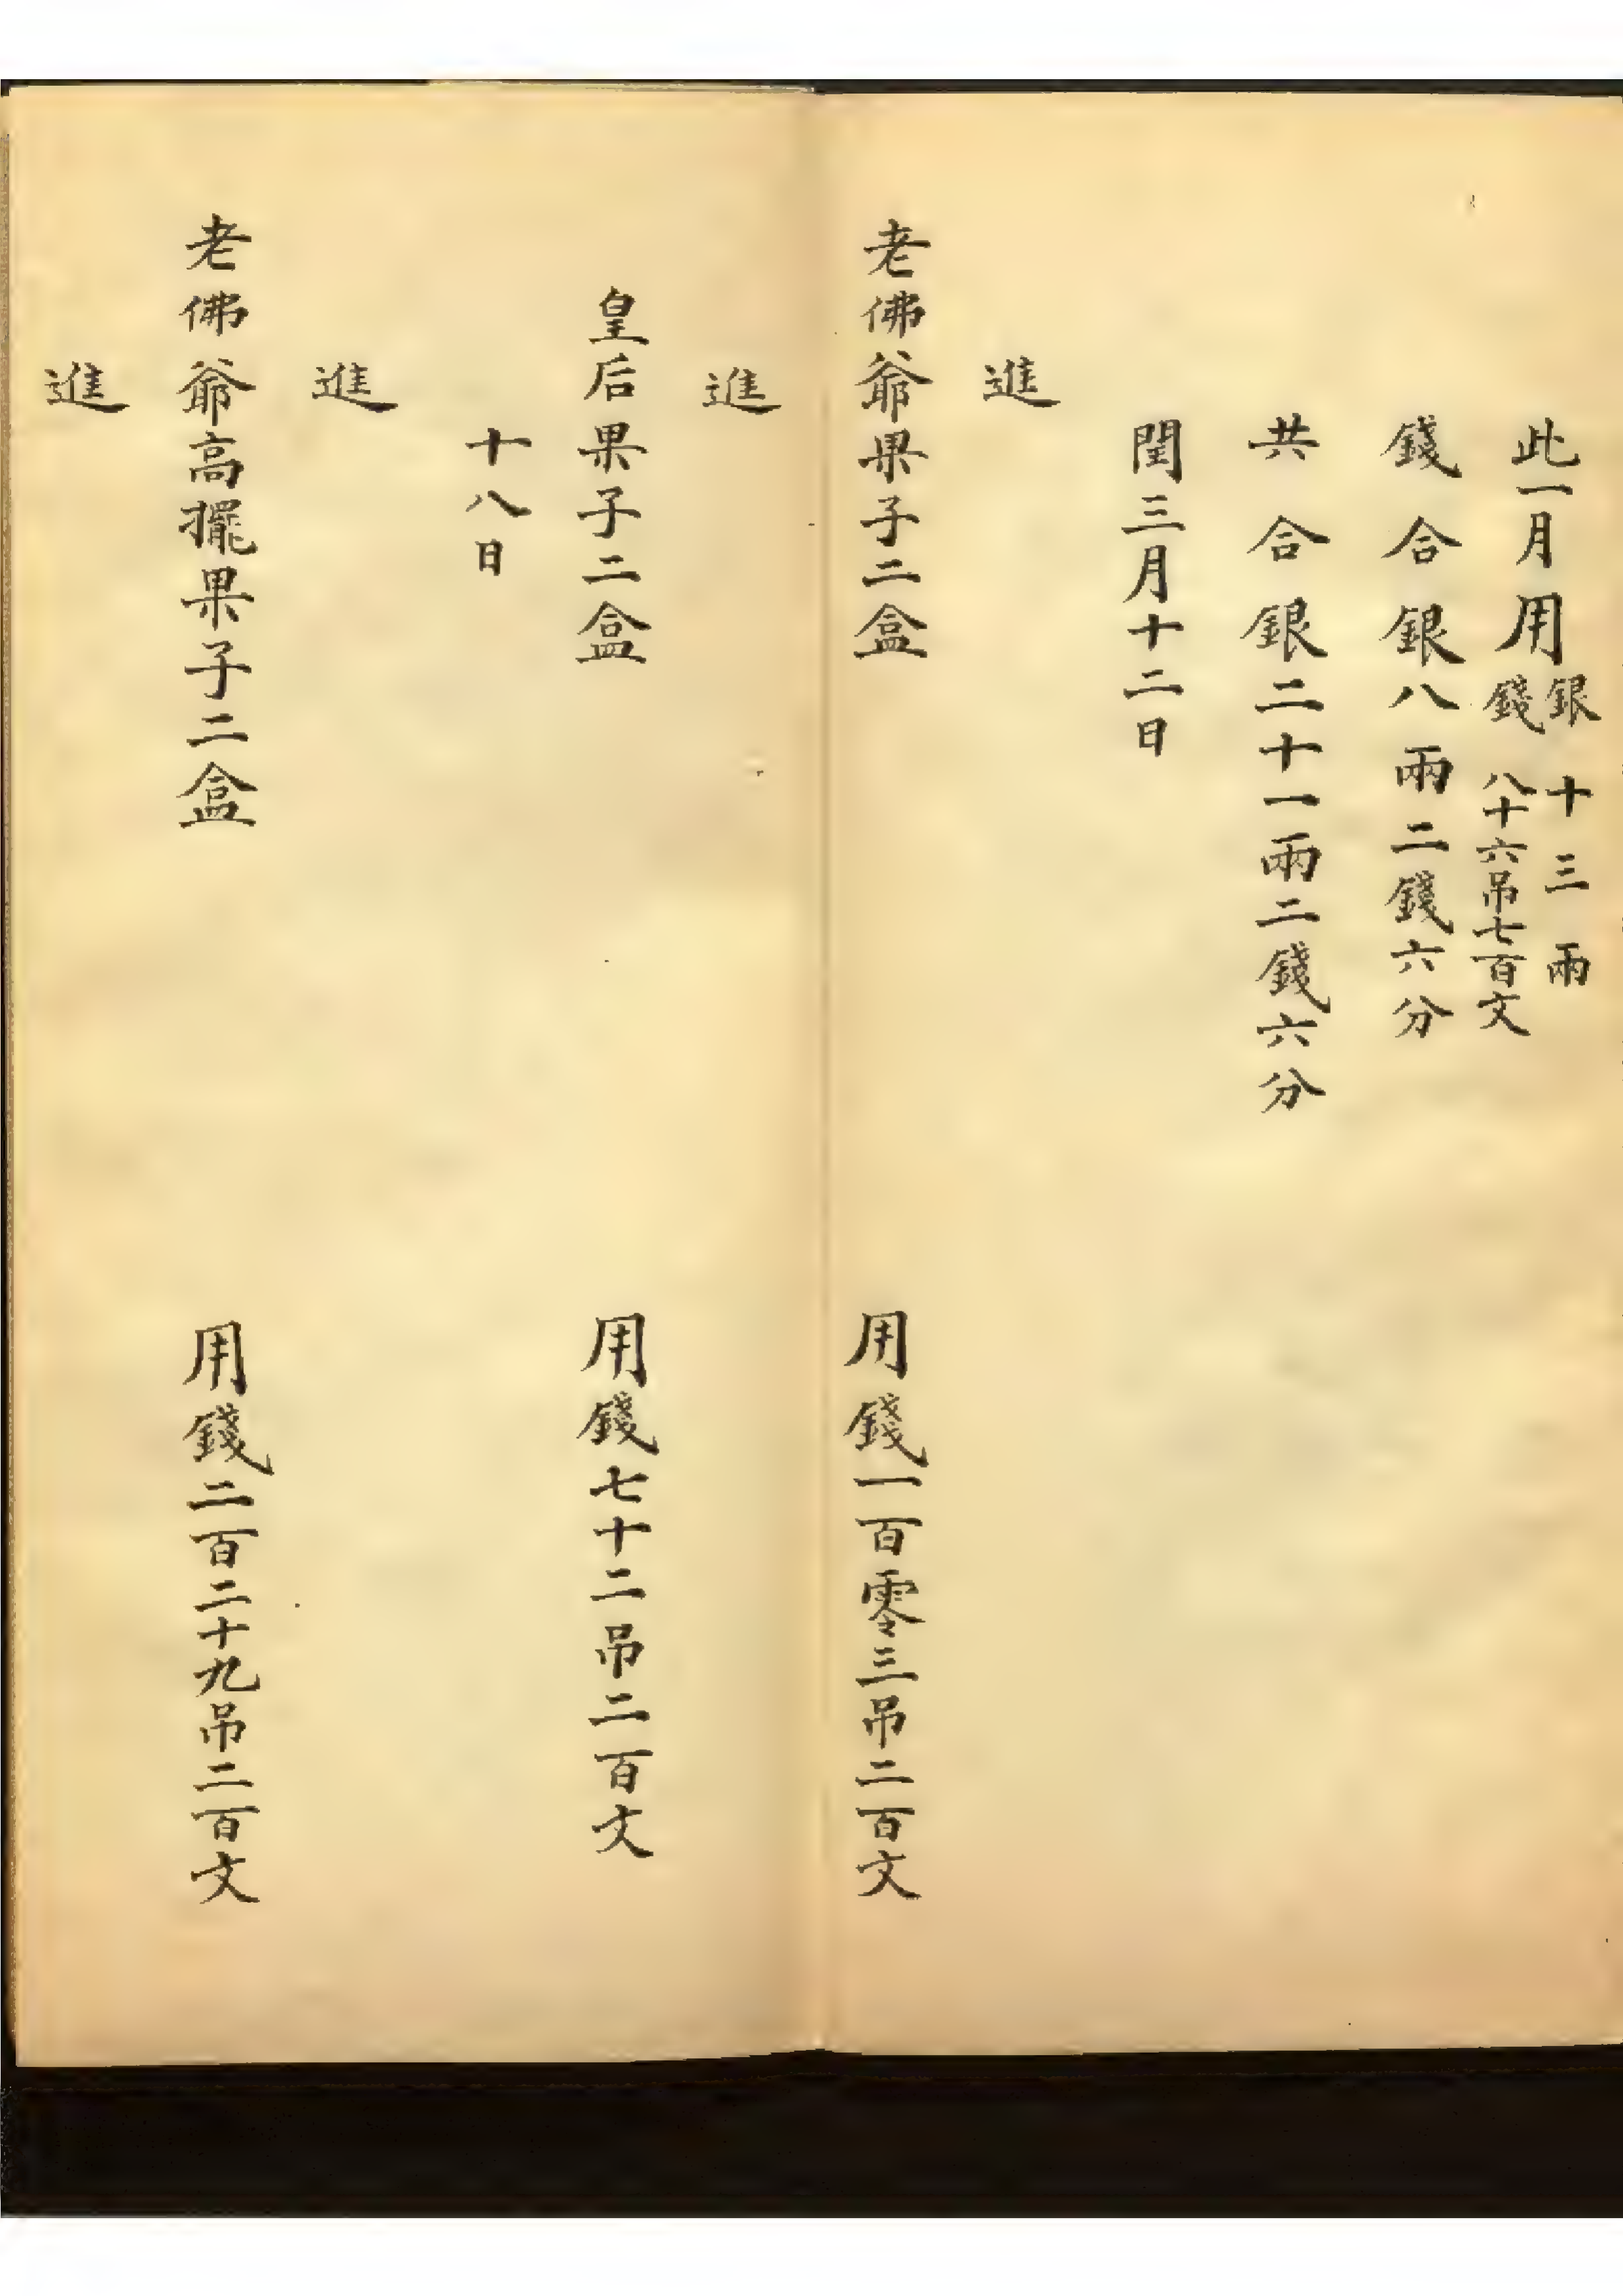 此一月用銀十三兩
錢八十六吊七百文
錢合銀八兩二錢六分
共合銀二十一兩二錢六分
閏三月十二日
進
老佛爺果子二盒 用錢一百零三吊二百文
進
皇后果子二盒 用錢七十二吊二百文
十八日
進
老佛爺高擺果子二盒 用錢二百二十九吊二百文
進